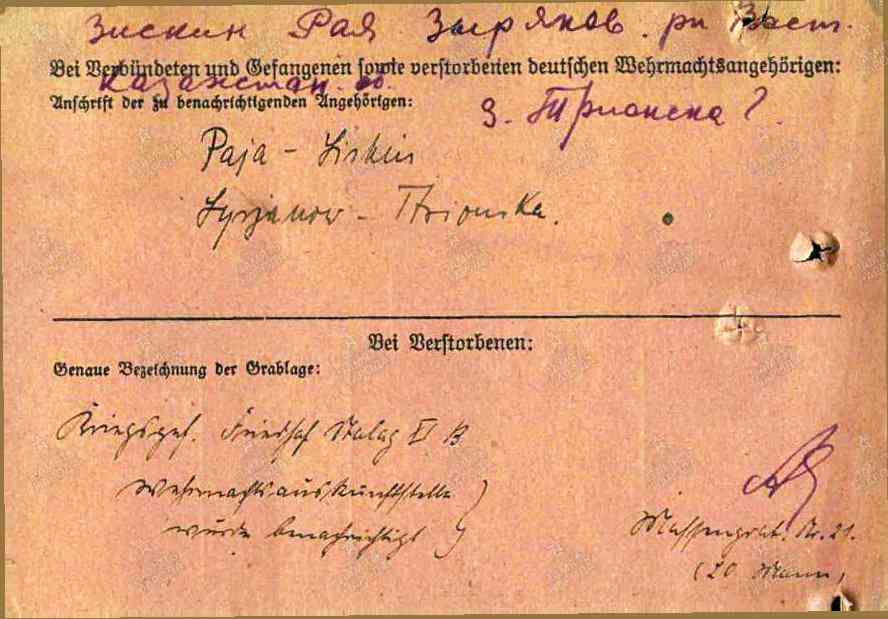 Зискин Рая Зырянов. рн Вост.
Bei Verbündeten und Gefangenen sowie verstorbenen deutschen Wehrmachtsangehörigen:
Казахстан. об.
Anschrift der zu benachrichtigenden Angehörigen:
Paja - Siskin
Syrjanow -
Bei Verstorbenen:
Genaue Bezeichnung der Grablage:
Kriegsgef. Friedhof Stalag XI B
Wehrmachtsauskunftstelle }
wurde benachrichtigt }
Massengrab. Nr. 21.
(20 Mann)